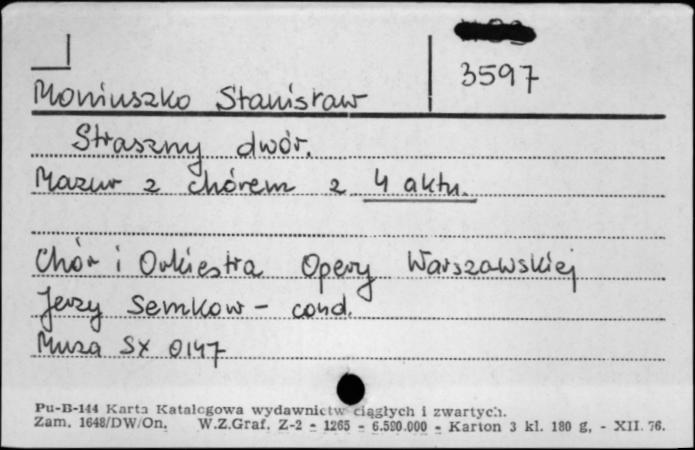 3597
Moniuszko Stanisław
Straszny dwór.
Mazur z chórem z 4 aktu.
Chór i Orkiestra Opery Warszawskiej
Jerzy Semkow - cond.
Muza SX 0147
Pu-B-144 Karta Katalogowa wydawnictw ciągłych i zwartych.
Zam. 1648/DW/On. W.Z.Graf. Z-2 - 1265 - 6.500.000 - Karton 3 kl. 180 g. - XII. 76.